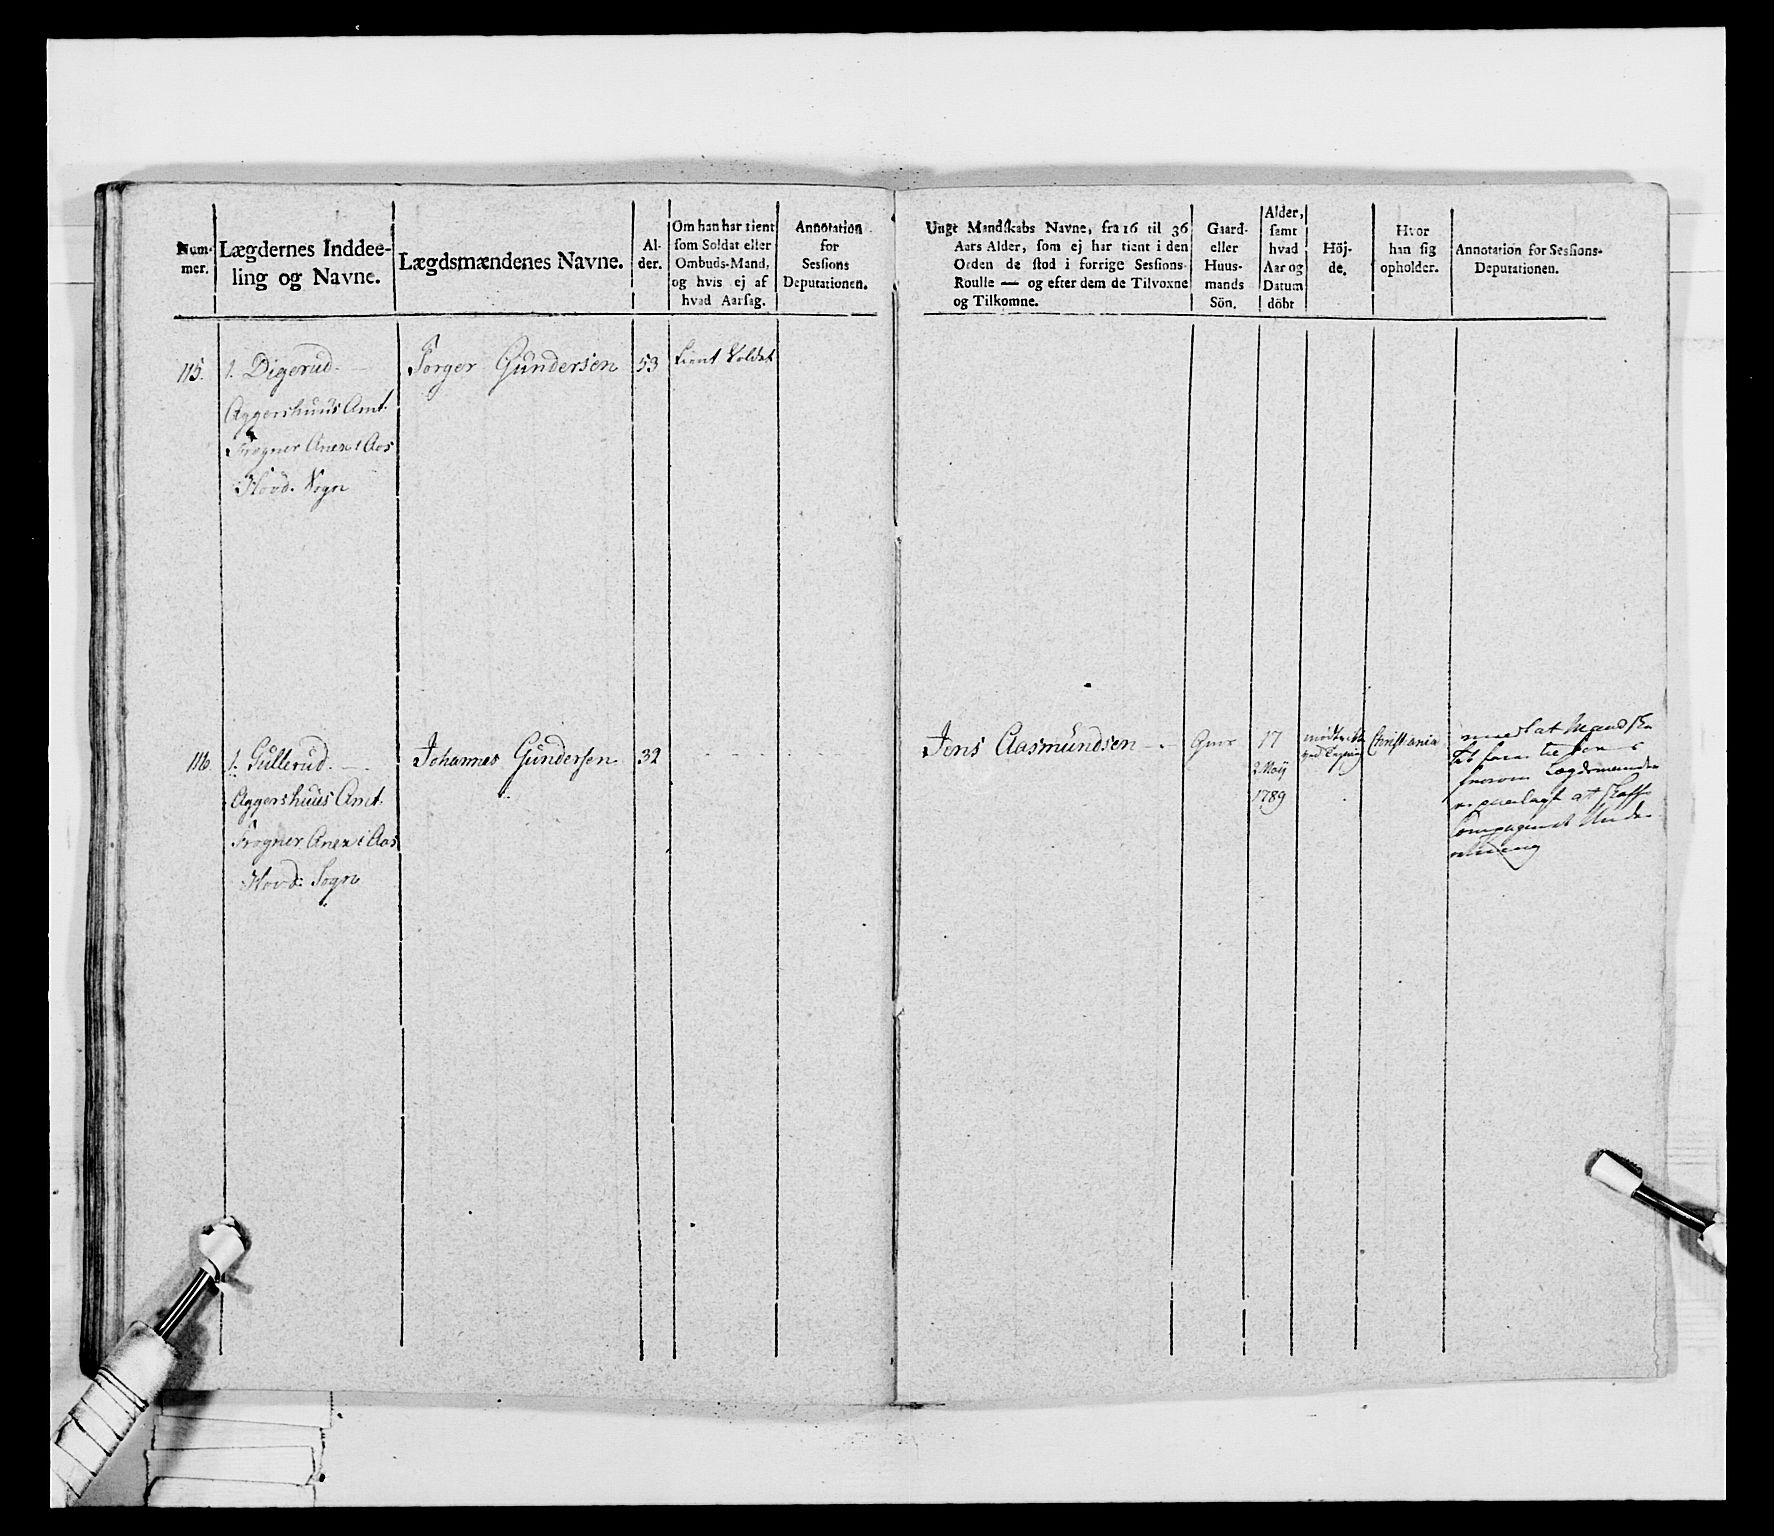 Num-
mer.
Lægdernes Inddee-
ling og Navne.
Lægdsmændenes Navne.
Al-
der.
Om han har tient
som Soldat eller
Ombuds-Mand,
og hvis ej af
hvad Aarsag.
Annotation
for
Sessions
Deputationen.
115.
1. Digerud.
Aggershuus Amt.
Frogner Anex i Aas
Hovd. Sogn
Torger Gundersen
53
tient Soldat
116
1. Gullerud.
Aggershuus Amt.
Frogner Anex i Aas
Hovd: Sogn
Johannes Gundersen
32
Ungt Mandskabs Navne, fra 16 til 36
Aars Alder, som ej har tient i den
Orden de stod i forrige Sessions-
Roulle — og efter dem de Tilvoxne
og Tilkomne.
Gaard-
eller
Huus-
mands
Sön.
Alder,
samt
hvad
Aar og
Datum
döbt
Höj-
de.
Hvor
han sig
opholder.
Annotation for Sessions-
Deputationen.
Jens Aasmundsen
Gmr
17
2 Maÿ
1789
Christiania
Lægdsmanden